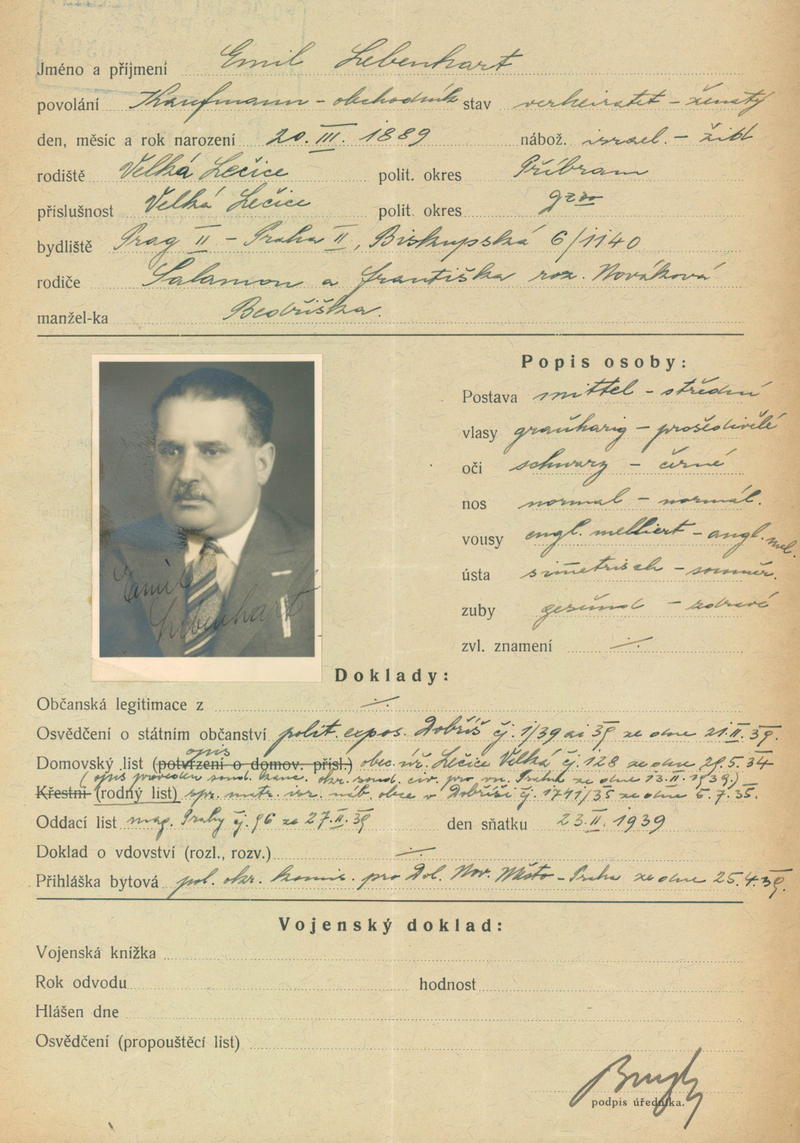 Jméno a příjmení Emil Lebenhart
povolání Kaufmann - obchodník stav verheiratet - ženatý
den, měsíc a rok narození 20. III. 1889 nábož. israel. - žid
rodiště Velká Lečice polit. okres Příbram
příslušnost Velká Lečice polit. okres
bydliště Prag II - Praha II, Biskupská 6/1140
rodiče Salamon a Františka roz. Nováková
manžel-ka Bedřiška.
Popis osoby:
Postava mittel - střední
vlasy grauharig - prošedivělé
oči schwarz - černé
nos normal - normál.
vousy engl. melliert - angl. mel.
ústa simetrisch - souměr.
zuby gesund - zdravé
zvl. znamení ·/·
Emil
Lebenhart
Doklady:
Občanská legitimace z ·/·
Osvědčení o státním občanství polit. expos. Dobříš čj. 1/39 ai 39 ze dne 21.II.39.
opis
Domovský list (potvrzení o domov. přísl.) obec. úř. Lečice Velká čj. 128 ze dne 29.5.34
(opis proveden soud. kanc. okr. soud. civ. pro vn. Prahu ze dne 13.II.1939.)
Křestní (rodný list) spr. matr. isr. náb. obce v Dobříši čj. 1741/35 ze dne 5.7.35.
Oddací list mag. Prahy čj. 96 ze 27.II.39 den sňatku 23.II.1939
Doklad o vdovství (rozl., rozv.) ·/·
Přihláška bytová pol. okr. komis. pro Dol. Nov. Město - Praha ze dne 25.4.39.
Vojenský doklad:
Vojenská knížka
Rok odvodu hodnost
Hlášen dne
Osvědčení (propouštěcí list)
podpis úředníka.